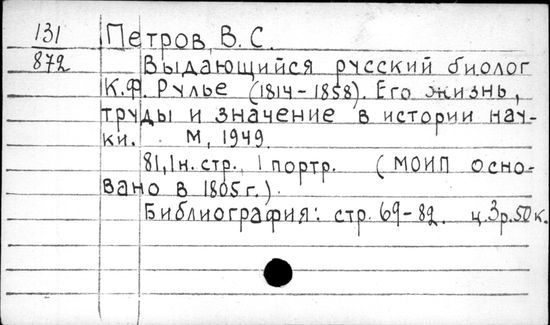 131 Петров, В. С.
872 Выдающийся русский биолог
К.Ф. Рулье (1814-1858). Его жизнь,
труды и значение в истории нау-
ки. М, 1949.
81,1н. стр., 1 портр. (МОИП осно-
вано в 1805г.).
Библиография: стр. 69-82. ц. 3р.50к.